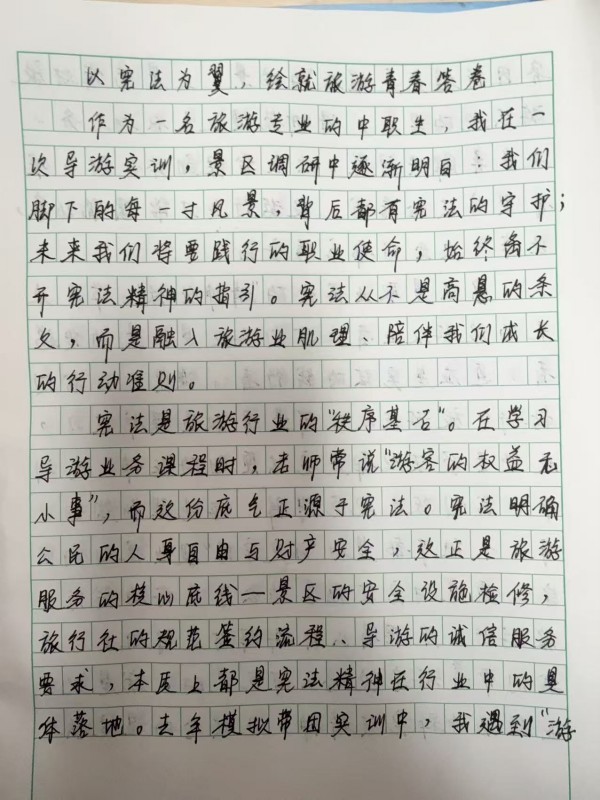 以宪法为翼，绘就旅游青春答卷
作为一名旅游专业的中职生，我在一
次次导游实训，景区调研中逐渐明白：我们
脚下的每一寸风景，背后都有宪法的守护；
未来我们将要践行的职业使命，始终离不
开宪法精神的指引。宪法从不是高悬的条
文，而是融入旅游业肌理、陪伴我们成长
的行动准则。
宪法是旅游行业的"秩序基石"。在学习
导游业务课程时，老师常说"游客的权益无
小事"，而这份底气正源于宪法。宪法明确
公民的人身自由与财产安全，这正是旅游
服务的核心底线—景区的安全设施检修，
旅行社的规范签约流程、导游的诚信服务
要求，本质上都是宪法精神在行业中的具
体落地。去年模拟带团实训中，我遇到"游